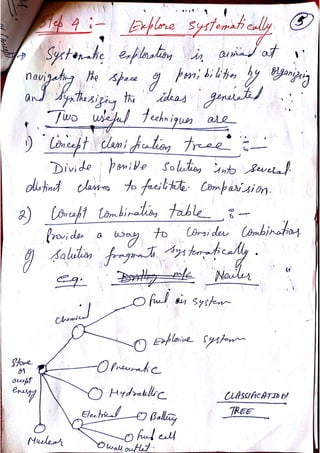 Step 4 :- Explore Systematically
5
Systematic exploration is aimed at
navigating the space of possibilities by organizing
and synthesizing the ideas generated.
Two useful techniques are
1) Concept classification treee :-
Divide possible solutions into several
distinct classes to facilitate comparision.
2) Concept Combination table :-
Provides a way to consider combinations
of solution fragments systematically.
eg. Nailer
Fuel air system
Chemical
Explosive system
Store or accept energy
Pneumatic
Hydraullic
CLASSIFICATION
TREE
Electrical
Battery
Fuel cell
wall outlet.
Nuclear